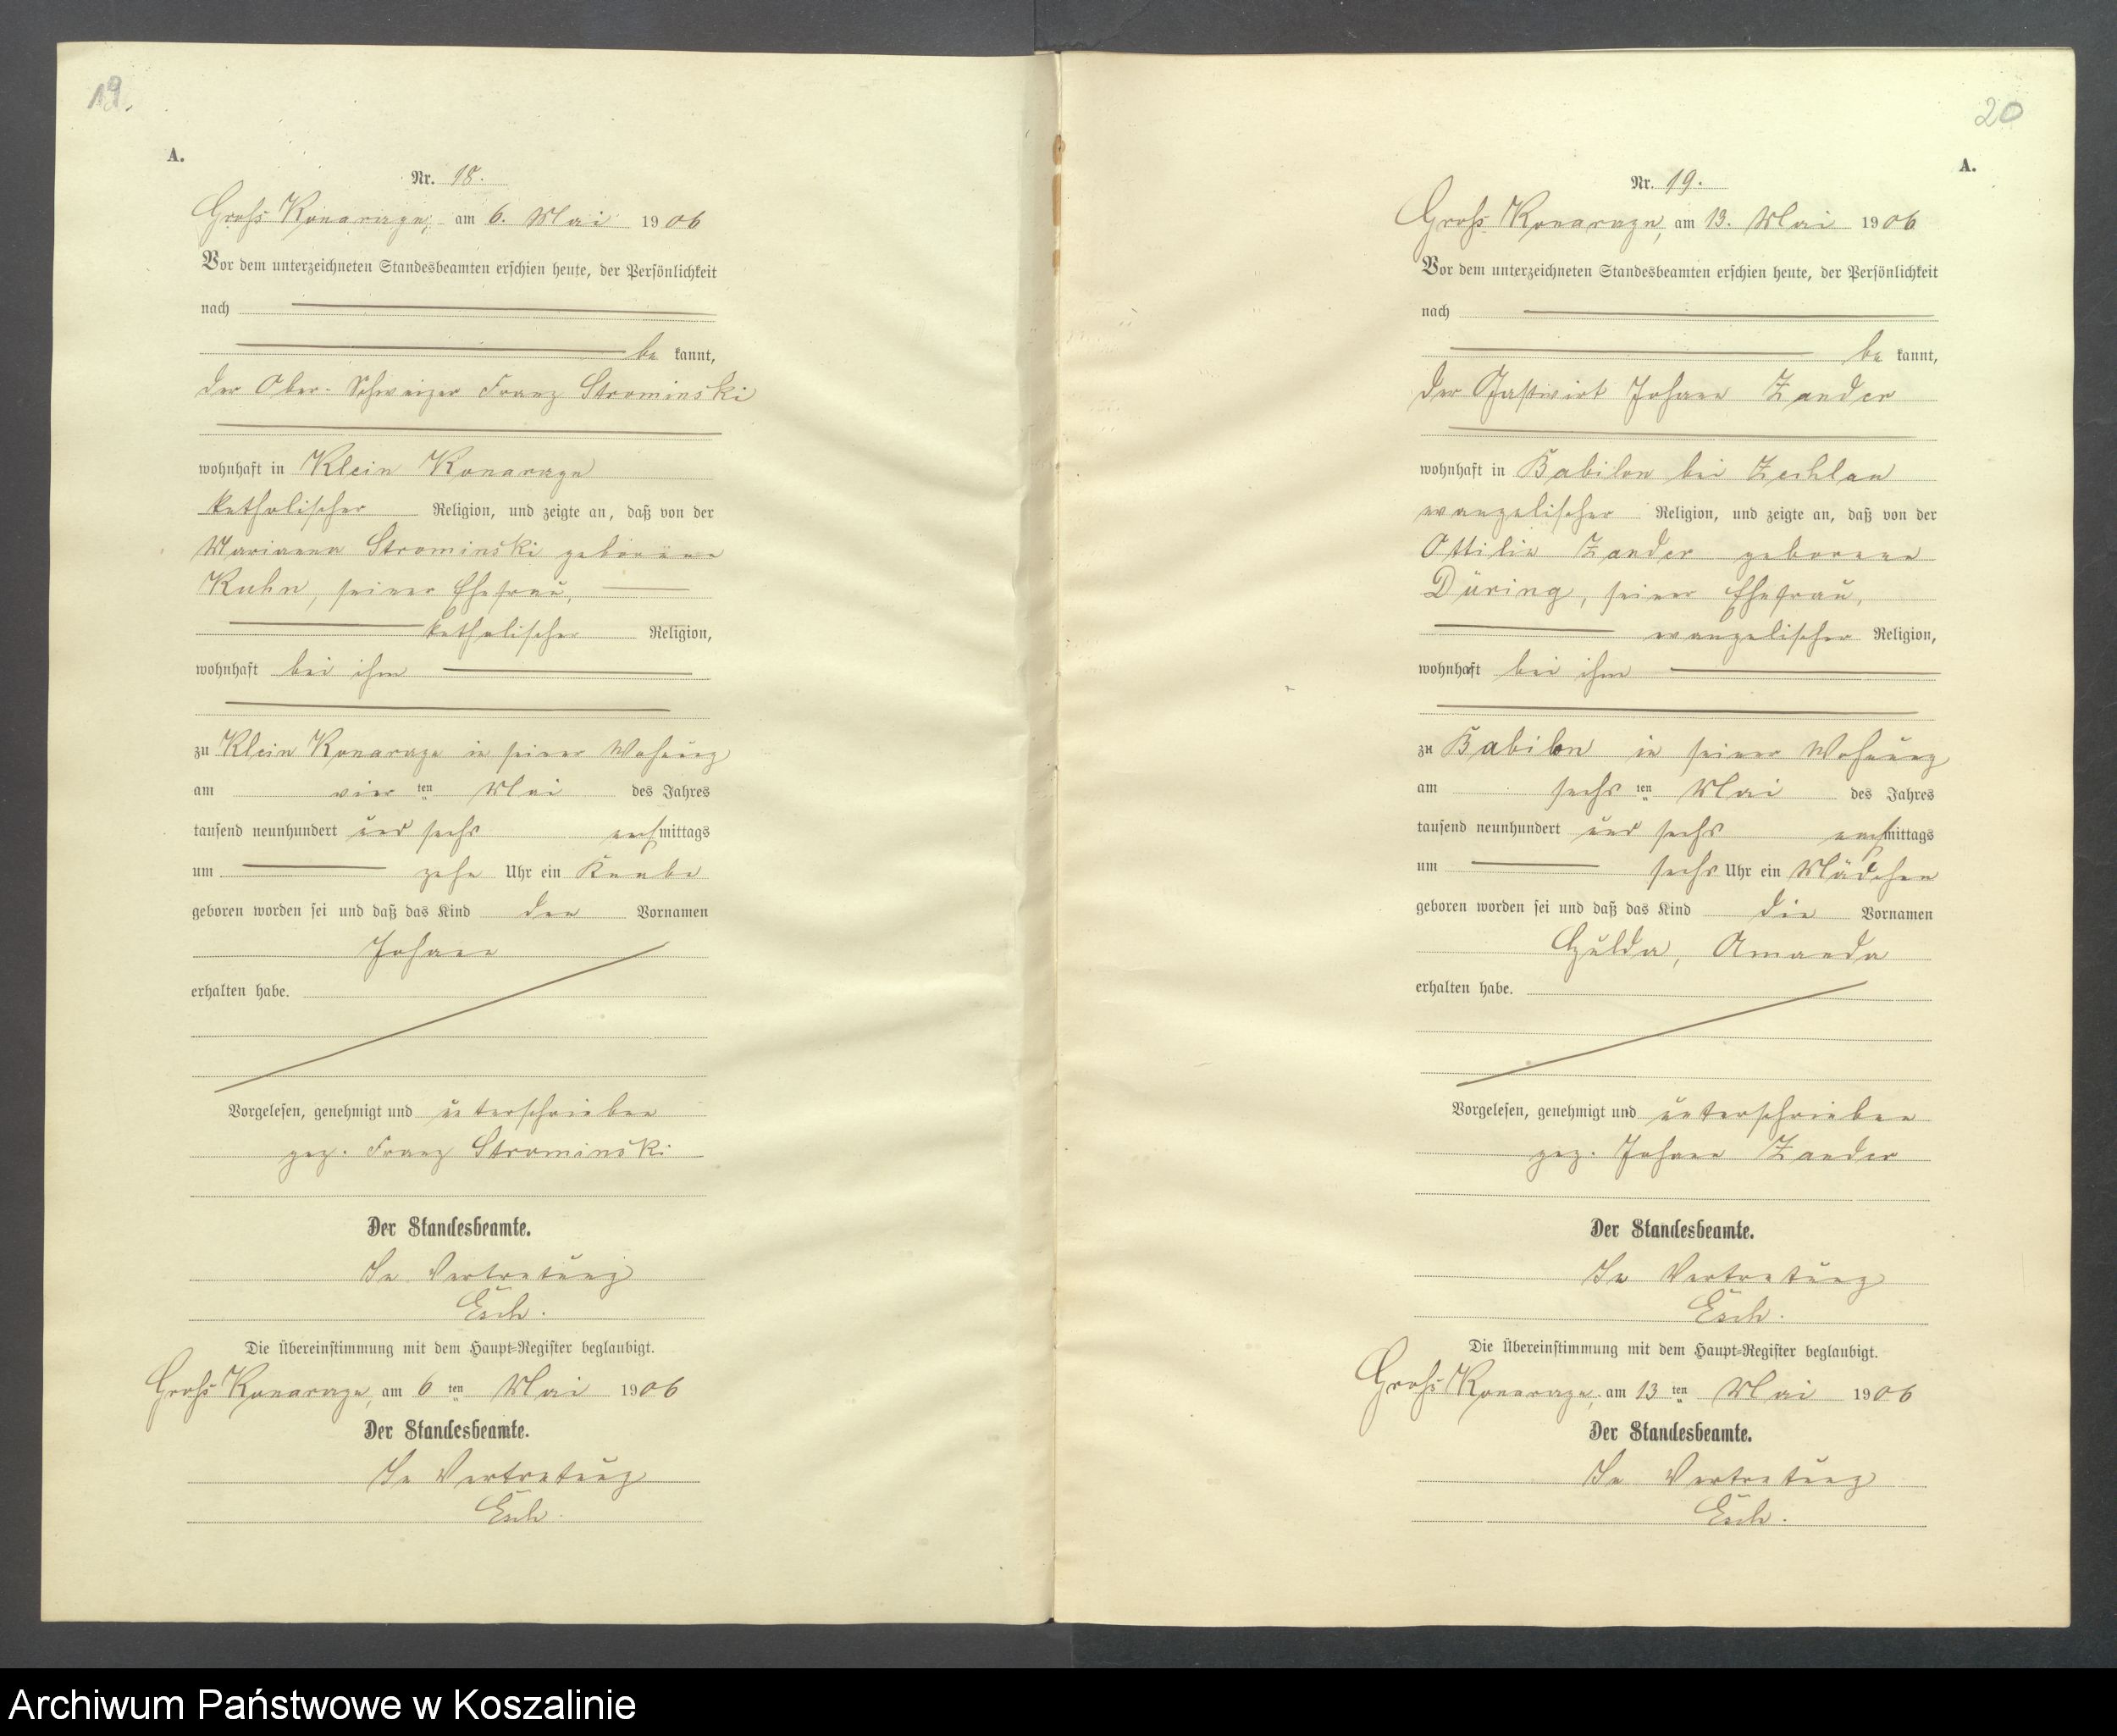 19.
A.
Nr. 18.
Groß Konarzyn, am 6. Mai 1906
Vor dem unterzeichneten Standesbeamten erschien heute, der Persönlichkeit
nach
be kannt,
der Ober-Schweizer Franz Strominski
wohnhaft in Klein Konarzyn
katholischer Religion, und zeigte an, daß von der
Marianna Strominski geborene
Kuhn, seiner Ehefrau,
katholischer Religion,
wohnhaft bei ihm
zu Klein Konarzyn in seiner Wohnung
am vier ten Mai des Jahres
tausend neunhundert und sechs nachmittags
um zehn Uhr ein Knabe
geboren worden sei und daß das Kind den Vornamen
Johann
erhalten habe.
Vorgelesen, genehmigt und unterschrieben
gez. Franz Strominski
Der Standesbeamte.
In Vertretung
Esch.
Die Übereinstimmung mit dem Haupt-Register beglaubigt.
Groß Konarzyn, am 6 ten Mai 1906
Der Standesbeamte.
In Vertretung
Esch.
20
A.
Nr. 19.
Groß Konarzyn, am 13. Mai 1906
Vor dem unterzeichneten Standesbeamten erschien heute, der Persönlichkeit
nach
be kannt,
der Gastwirt Johann Zander
wohnhaft in Babilon bei Zechlau
evangelischer Religion, und zeigte an, daß von der
Ottilie Zander geborene
Düring, seiner Ehefrau,
evangelischer Religion,
wohnhaft bei ihm
zu Babilon in seiner Wohnung
am sechs ten Mai des Jahres
tausend neunhundert und sechs nachmittags
um sechs Uhr ein Mädchen
geboren worden sei und daß das Kind die Vornamen
Hulda, Amanda
erhalten habe.
Vorgelesen, genehmigt und unterschrieben
gez. Johann Zander
Der Standesbeamte.
In Vertretung
Esch.
Die Übereinstimmung mit dem Haupt-Register beglaubigt.
Groß Konarzyn, am 13 ten Mai 1906
Der Standesbeamte.
In Vertretung
Esch.
Archiwum Państwowe w Koszalinie